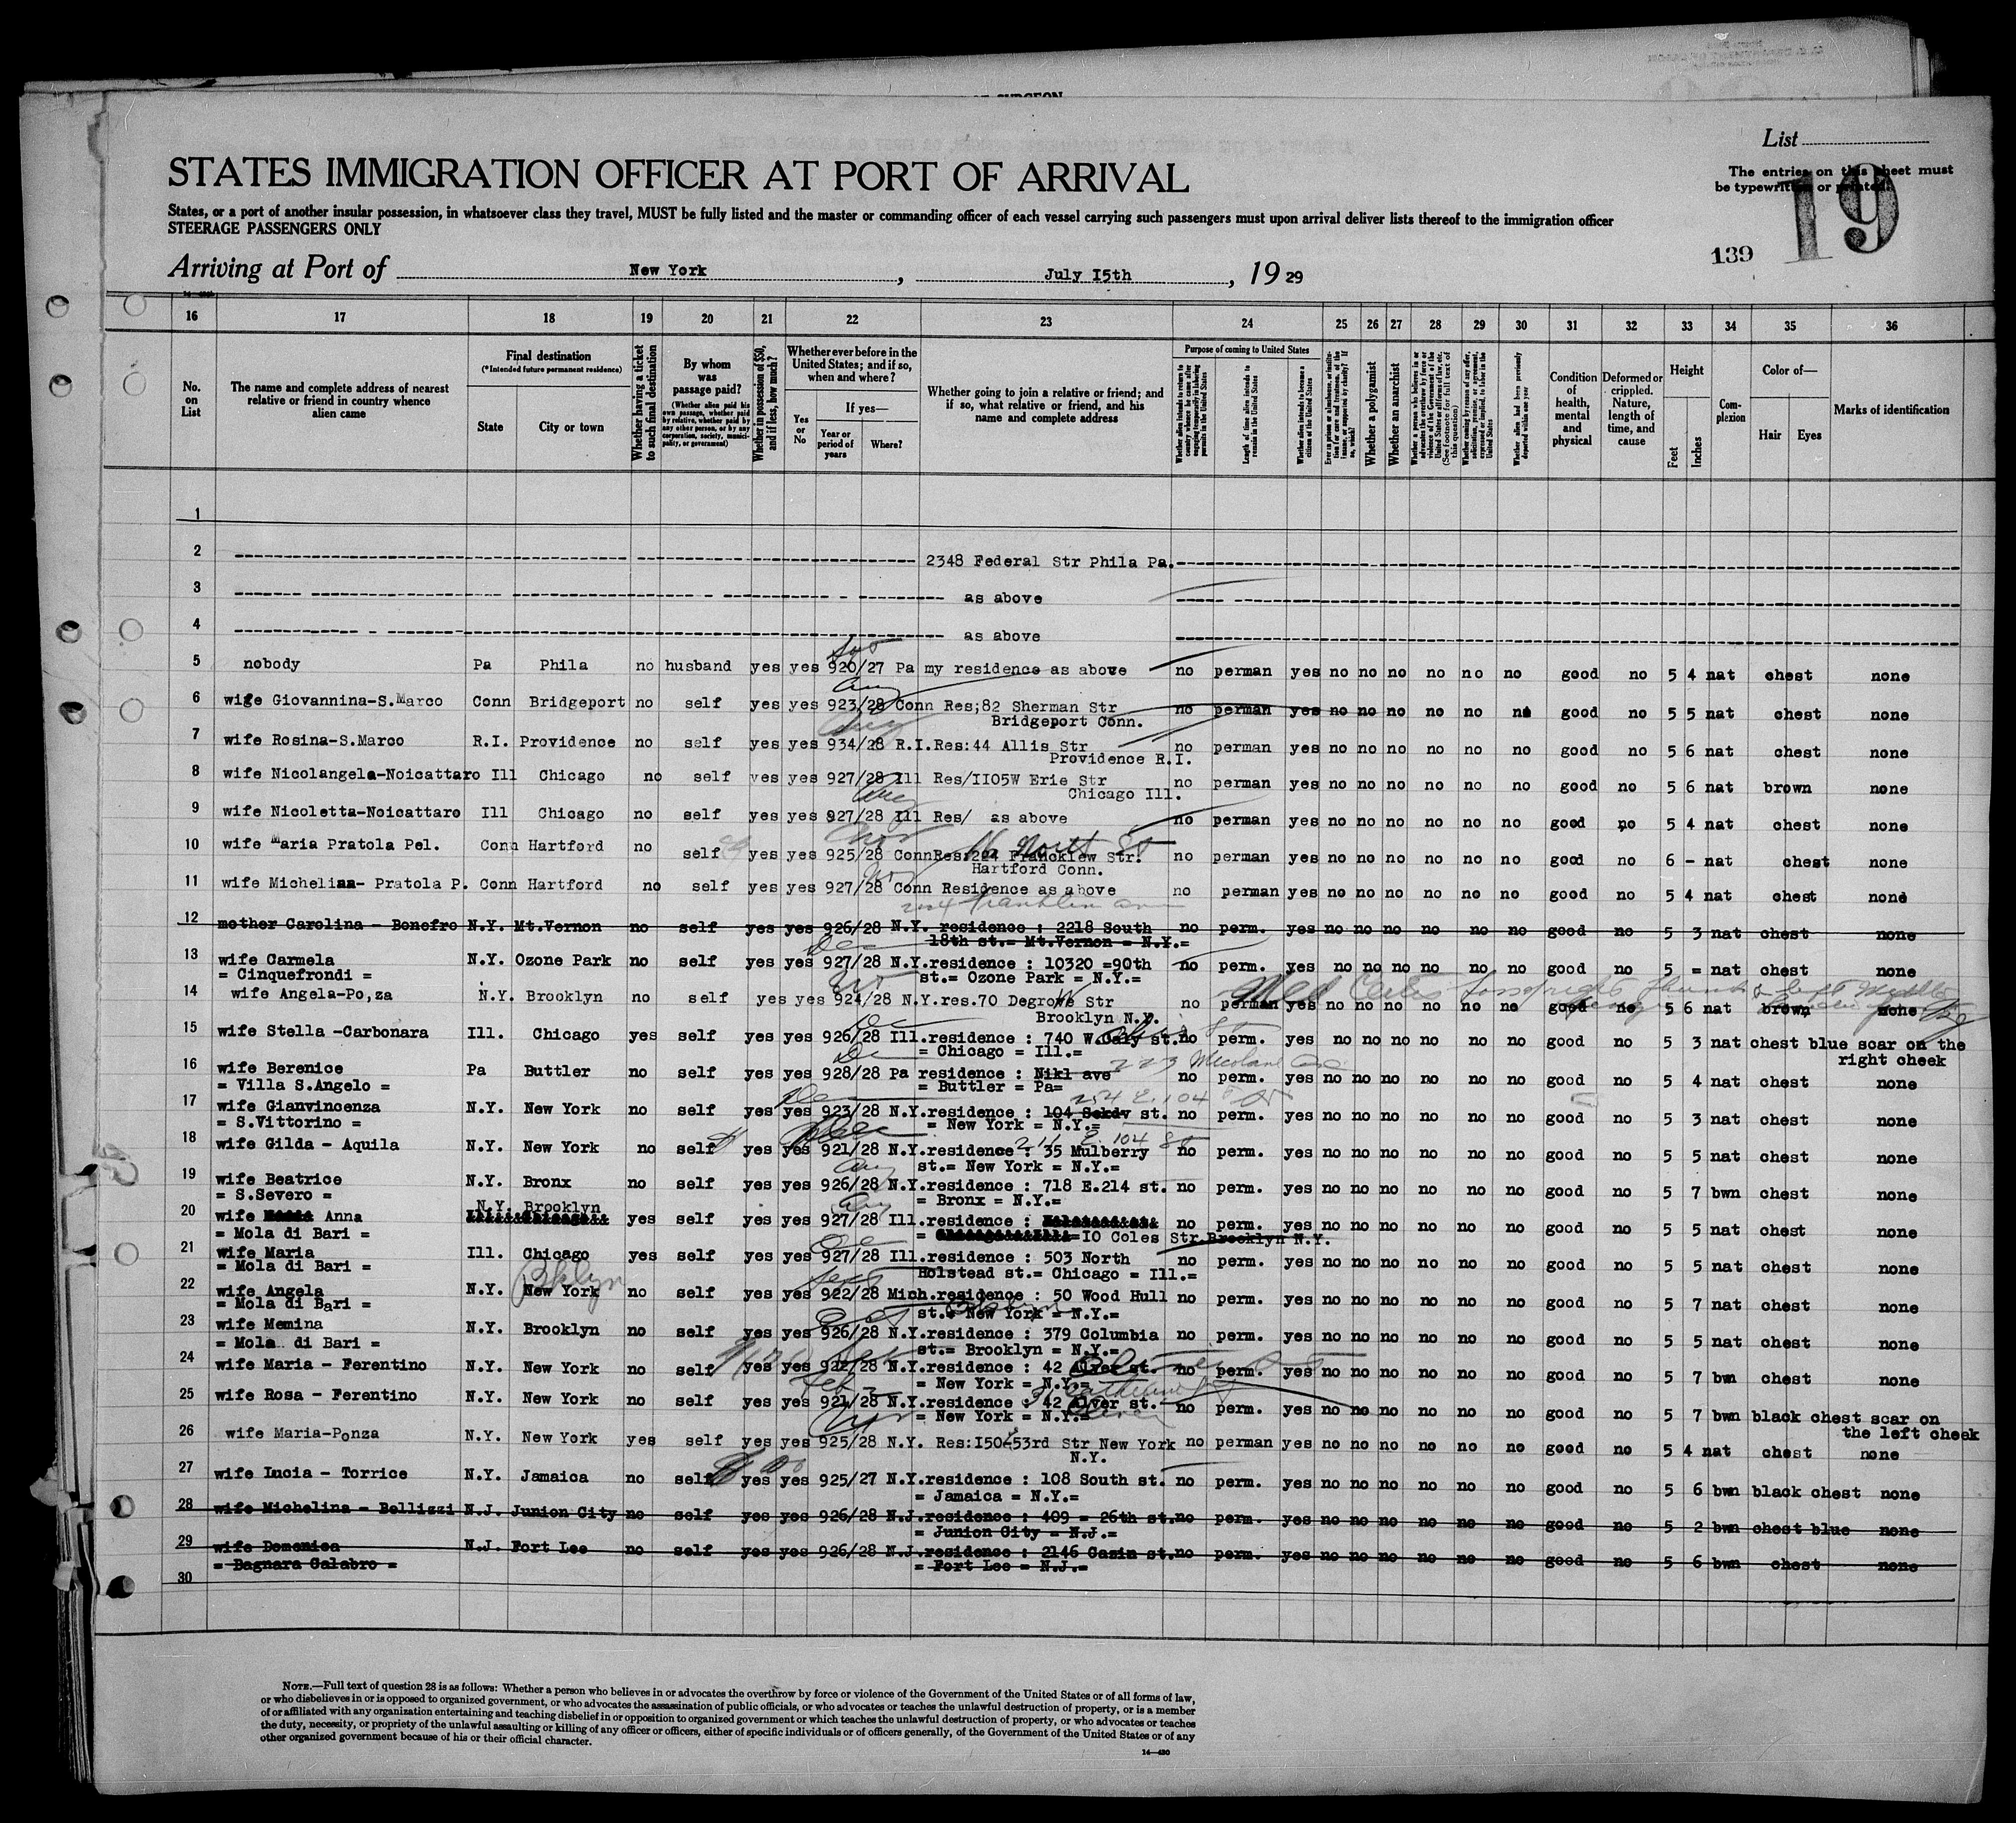 List
The entries on this sheet must
be typewritten or printed.
19
139
STATES IMMIGRATION OFFICER AT PORT OF ARRIVAL
States, or a port of another insular possession, in whatsoever class they travel, MUST be fully listed and the master or commanding officer of each vessel carrying such passengers must upon arrival deliver lists thereof to the immigration officer
STEERAGE PASSENGERS ONLY
Arriving at Port of New York, July I5th, 1929
16 17 18 19 20 21 22 23 24 25 26 27 28 29 30 31 32 33 34 35 36
No. on List
The name and complete address of nearest relative or friend in country whence alien came
Final destination
(*Intended future permanent residence)
State
City or town
Whether having a ticket to such final destination
By whom was passage paid?
(Whether alien paid his own passage, whether paid by relative, whether paid by any other person, or by any corporation, society, municipality, or government)
Whether in possession of $50, and if less, how much?
Whether ever before in the United States; and if so, when and where?
Yes or No
If yes—
Year or period of years
Where?
Whether going to join a relative or friend; and if so, what relative or friend, and his name and complete address
Purpose of coming to United States
Length of time alien intends to remain in the United States
Whether alien intends to become a citizen of the United States
Whether a polygamist
Whether an anarchist
Condition of health, mental and physical
Deformed or crippled. Nature, length of time, and cause
Height
Feet
Inches
Complexion
Color of—
Hair
Eyes
Marks of identification
1
2 2348 Federal Str Phila Pa.
3 as above
4 as above
5 nobody Pa Phila no husband yes yes 920/27 Pa my residence as above no perman yes no no no no no no good no 5 4 nat chest none
6 wife Giovannina-S.Marco Conn Bridgeport no self yes yes 923/28 Conn Res;82 Sherman Str no perman yes no no no no no no good no 5 5 nat chest none
Bridgeport Conn.
7 wife Rosina-S.Marco R.I. Providence no self yes yes 934/28 R.I.Res:44 Allis Str no perman yes no no no no no no good no 5 6 nat chest none
Providence R.I.
8 wife Nicolangela-Noicattaro Ill Chicago no self yes yes 927/28 Ill Res/II05W Erie Str no perman yes no no no no no no good no 5 6 nat brown none
Chicago Ill.
9 wife Nicoletta-Noicattaro Ill Chicago no self yes yes 927/28 Ill Res/ as above no perman yes no no no no no no good no 5 4 nat chest none
10 wife Maria Pratola Pel. Conn Hartford no self yes yes 925/28 ConnRes:224 Francklew Str. no perman yes no no no no no no good no 6 - nat chest none
Hartford Conn.
11 wife Michelina- Pratola P. Conn Hartford no self yes yes 927/28 Conn Residence as above no perman yes no no no no no no good no 5 4 nat chest none
12 mother Carolina - Bonefro N.Y. Mt.Vernon no self yes yes 926/28 N.Y. residence : 2218 South no perm. yes no no no no no no good no 5 3 nat chest none
18th st.= Mt.Vernon = N.Y.=
13 wife Carmela N.Y. Ozone Park no self yes yes 927/28 N.Y.residence : 10320 =90th no perm. yes no no no no no no good no 5 = nat chest none
= Cinquefrondi = st.= Ozone Park = N.Y.=
14 wife Angela-Po,za N.Y. Brooklyn no self yes yes 924/28 N.Y.res.70 Degrowe Str no perman yes no no no no no no good no 5 6 nat brown none
Brooklyn N.Y.
15 wife Stella -Carbonara Ill. Chicago yes self yes yes 926/28 Ill.residence : 740 W. st. no perm. yes no no no no no no good no 5 3 nat chest blue scar on the
= Chicago = Ill.= right cheek
16 wife Berenice Pa Buttler no self yes yes 928/28 Pa residence : Nikl ave no perm. yes no no no no no no good no 5 4 nat chest none
= Villa S.Angelo = = Buttler = Pa=
254 E. 104 St
17 wife Gianvincenza N.Y. New York no self yes yes 923/28 N.Y.residence : 104 st. no perm. yes no no no no no no good no 5 3 nat chest none
= S.Vittorino = = New York = N.Y.=
211 E. 104 St
18 wife Gilda - Aquila N.Y. New York no self yes yes 921/28 N.Y.residence : 35 Mulberry no perm. yes no no no no no no good no 5 5 nat chest none
st.= New York = N.Y.=
19 wife Beatrice N.Y. Bronx no self yes yes 926/28 N.Y.residence : 718 E.214 st. no perm. yes no no no no no no good no 5 7 bwn chest none
= S.Severo = = Bronx = N.Y.=
N.Y. Brooklyn
20 wife Anna yes self yes yes 927/28 Ill.residence : no perm. yes no no no no no no good no 5 5 nat chest none
= Mola di Bari = =IO Coles Str.Brooklyn N.Y.
21 wife Maria Ill. Chicago yes self yes yes 927/28 Ill.residence : 503 North no perm. yes no no no no no no good no 5 5 nat chest none
= Mola di Bari = Holstead st.= Chicago = Ill.=
Bklyn
22 wife Angela N.Y. New York no self yes yes 922/28 Mich.residence : 50 Wood Hull no perm. yes no no no no no no good no 5 7 nat chest none
= Mola di Bari = st.= New York = N.Y.=
23 wife Memina N.Y. Brooklyn no self yes yes 926/28 N.Y.residence : 379 Columbia no perm. yes no no no no no no good no 5 5 nat chest none
= Mola di Bari = st.= Brooklyn = N.Y.=
24 wife Maria - Ferentino N.Y. New York no self yes yes 922/28 N.Y.residence : 42 Alver st. no perm. yes no no no no no no good no 5 7 bwn chest none
= New York = N.Y.=
25 wife Rosa - Ferentino N.Y. New York no self yes yes 921/28 N.Y.residence : 42 Alver st. no perm. yes no no no no no no good no 5 7 bwn black chest scar on
= New York = N.Y.= the left cheek
26 wife Maria-Ponza N.Y. New York yes self yes yes 925/28 N.Y. Res:I50 53rd Str New York no perman yes no no no no no no good no 5 4 nat chest none
N.Y.
27 wife Lucia - Torrice N.Y. Jamaica no self yes yes 925/27 N.Y.residence : 108 South st. no perm. yes no no no no no no good no 5 6 bwn black chest none
= Jamaica = N.Y.=
28 wife Michelina - Bellizzi N.J. Junion City no self yes yes 926/28 N.J.residence : 409 = 26th st. no perm. yes no no no no no no good no 5 2 bwn chest blue none
= Junion City = N.J.=
29 wife Domenica N.J. Fort Lee no self yes yes 926/28 N.J.residence : 2146 Casin st. no perm. yes no no no no no no good no 5 6 bwn chest none
= Bagnara Calabro = = Fort Lee = N.J.=
30
NOTE.—Full text of question 28 is as follows: Whether a person who believes in or advocates the overthrow by force or violence of the Government of the United States or of all forms of law,
or who disbelieves in or is opposed to organized government, or who advocates the assassination of public officials, or who advocates or teaches the unlawful destruction of property, or is a member
of or affiliated with any organization entertaining and teaching disbelief in or opposition to organized government or which teaches the unlawful destruction of property, or who advocates or teaches
the duty, necessity, or propriety of the unlawful assaulting or killing of any officer or officers, either of specific individuals or of officers generally, of the Government of the United States or of any
other organized government because of his or their official character.
14—430